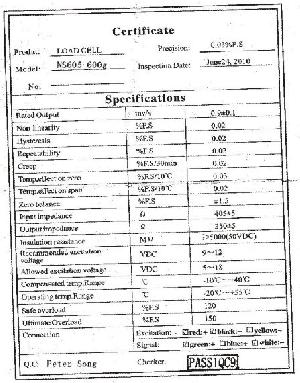 Certificate
Produc. LOAD CELL Precision: 0.03%F.S
Model: NS605 600g Inspection Date: June 24, 2010
No.
Specifications
Rated Output mv/v 0.6±0.1
Non linearity %F.S 0.02
Hysteresis %F.S 0.02
Repeatability %F.S 0.02
Creep %F.S/30min 0.02
Temp.effect on zero %F.S/10°C 0.03
Temp.effect on span %F.S/10°C 0.02
Zero balance %F.S ±1.5
Input impedance Ω 405±5
Output impedance Ω 350±5
Insulation resistance MΩ ≥5000(50VDC)
Recommended excitation voltage VDC 9~12
Allowed excitation voltage VDC 5~18
Compensated temp.Range °C -10°C~+40°C
Operating temp.Range °C -20°C~+55°C
Safe overload %F.S 120
Ultimate Overload %F.S 150
Connection Excitation: red:+ black:- yellow-
Signal: green:+ blue:+ white:-
Q.C: Peter Song Checker: PASS1QC9